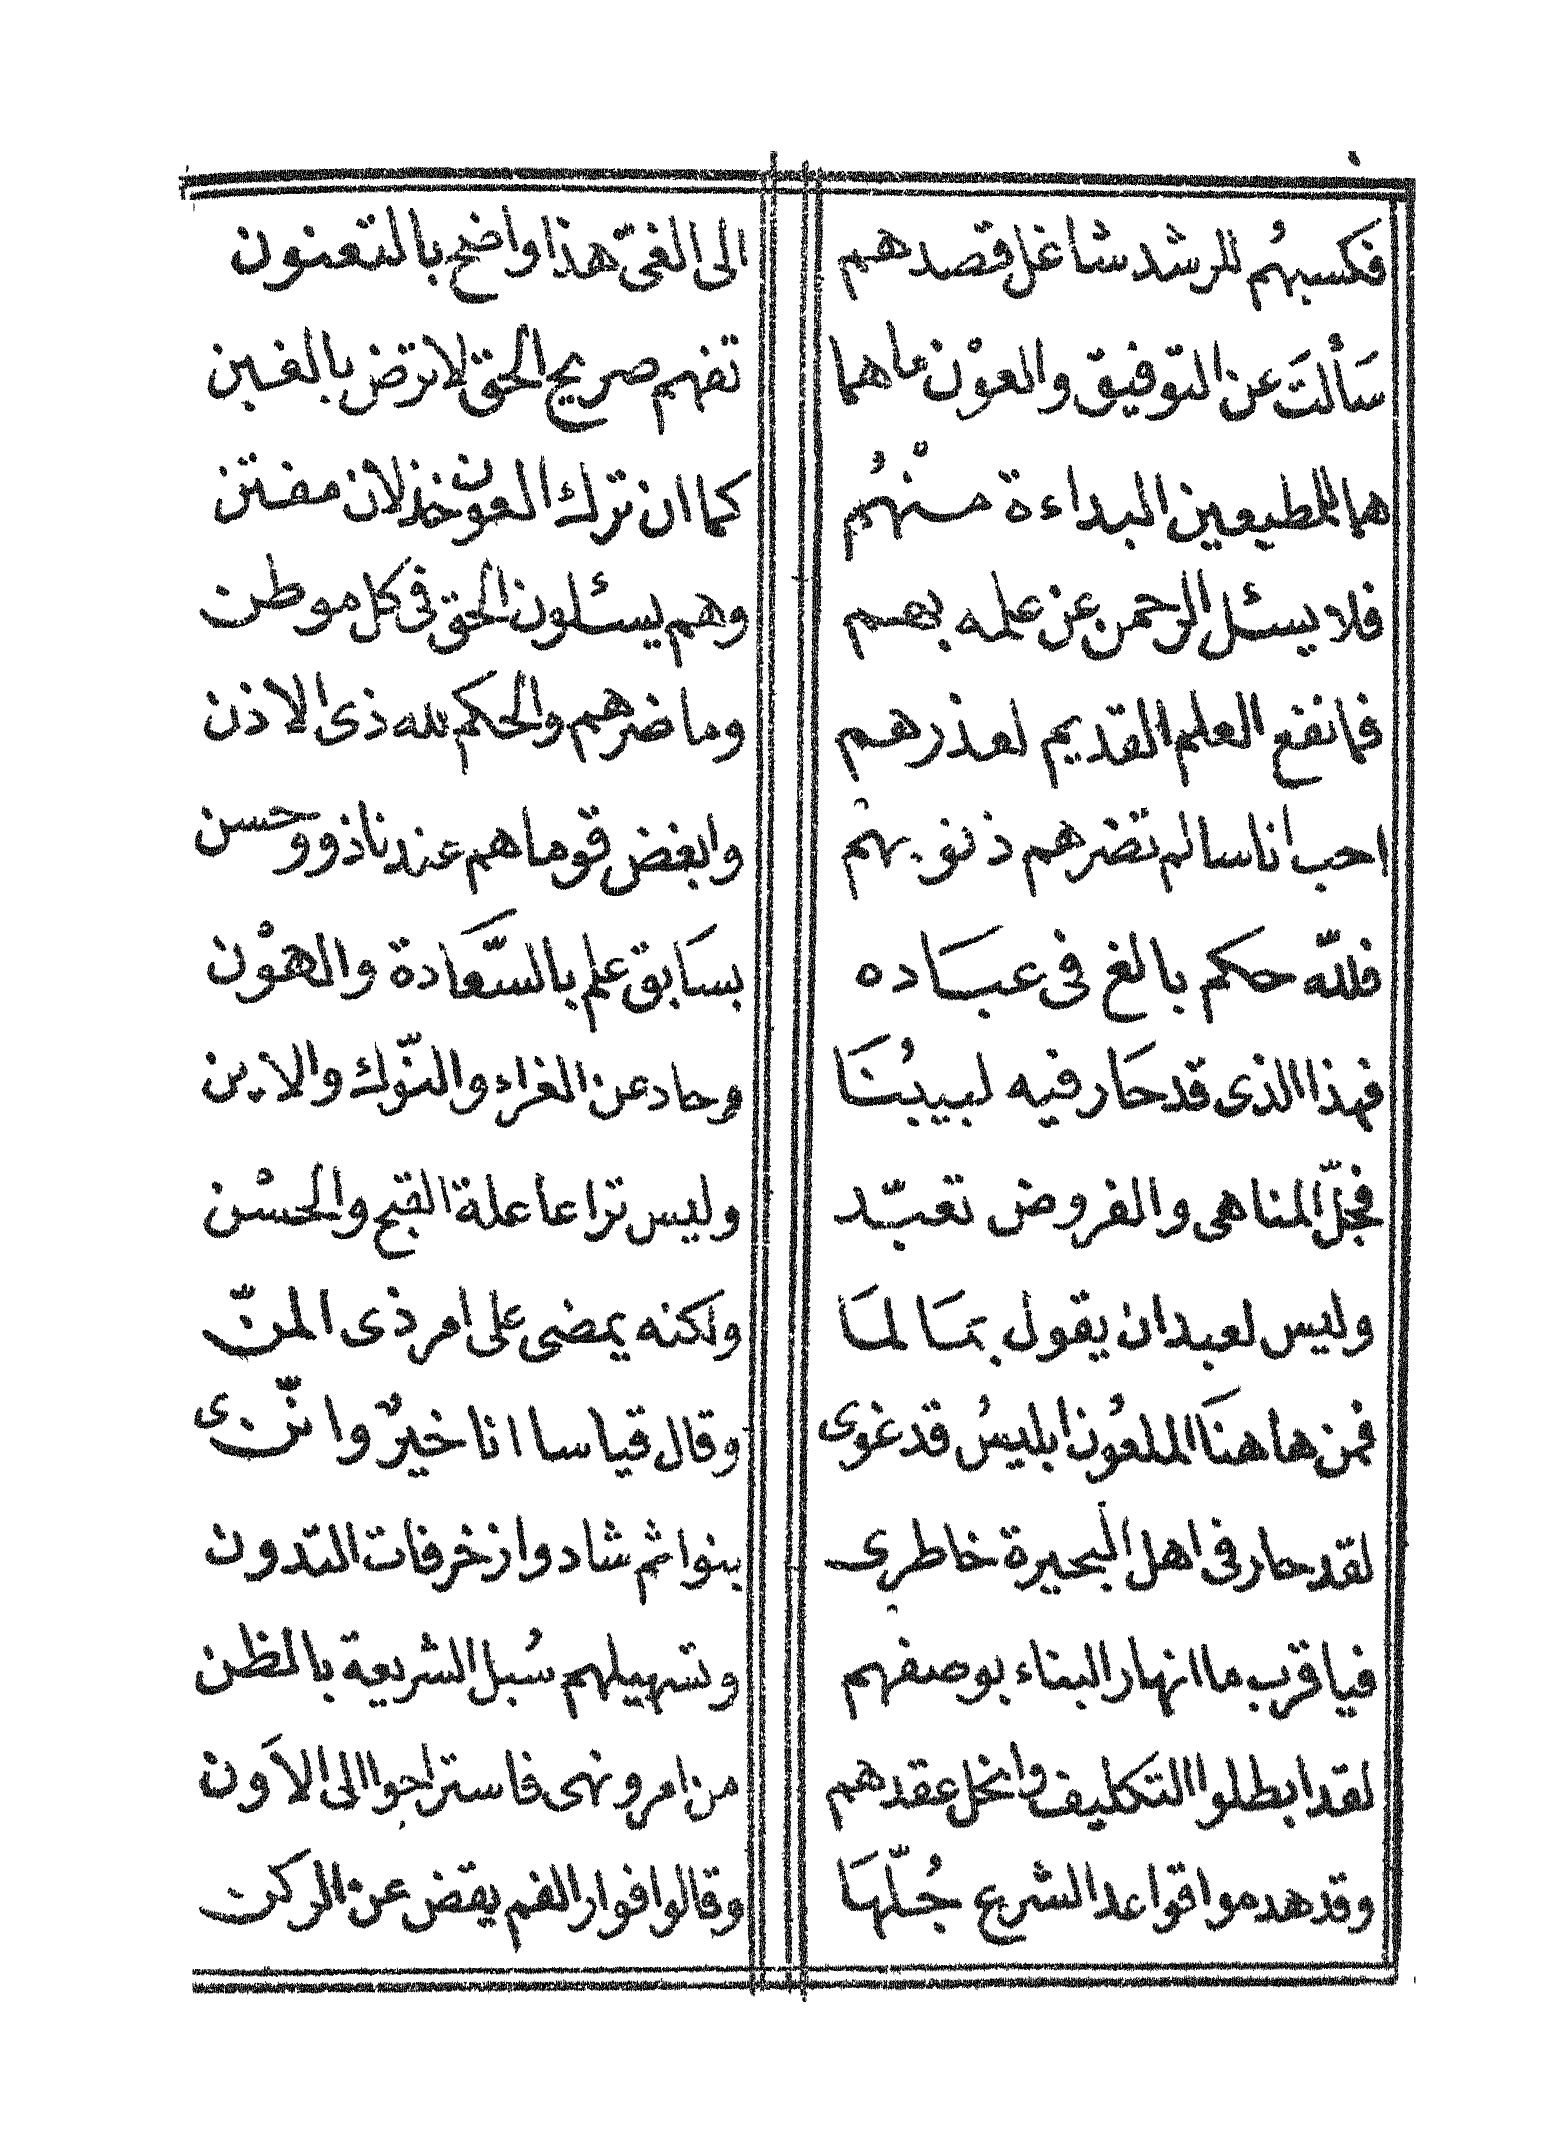 فكسبهُم للرشد شاغل قصدهم الى الغىّ هذا واضح بالتعنون
سَألتَ عن التوفيق والعوْن ما هما تفهم صريح الحق لا ترض بالغبن
هما للمطيعين البداءة منْهُم كما ان ترك العون خذلان مفتن
فلا يسئل الرحمن عن علمه بهم وهم يسئلون الحق فى كل موطن
فما نفع العلم القديم لعذرهم وما ضرهم والحكم لله ذى الاذن
احب اناسا لم تضرهم ذنوبهم وابغض قوما هم عندنا ذوو حسن
فللّه حكم بالغ فى عبَاده بسَابق علم بالسَّعادة والهوْن
فهذا الذى قد حَار فيه لبيبُنَا وحاد عن الغراء والنّوك والاين
فجلّ المناهى والفروض تعبّد وليس تراعا علة القبح والحسْن
وليس لعبد ان يقول بمَا لمَا ولكنه يمضى على امر ذى المنّ
فمن هاهنَا الملعُون ابليسُ قد غوى وقال قياسا انا خيرٌ وانّنى
لقد حار فى اهل البحيرة خاطرى بنوا ثم شادوا زخرفات التدون
فيا قرب ما انهار البناء بوصفهم وتسهيلهم سُبل الشريعة بالظن
لقد ابطلوا التكليف وانحل عقدهم من امر ونهى فاستراجوا الى الاَون
وقد هدموا قواعد الشريع جُلّهَا وقالوا فوار الفم يقض عن الركن